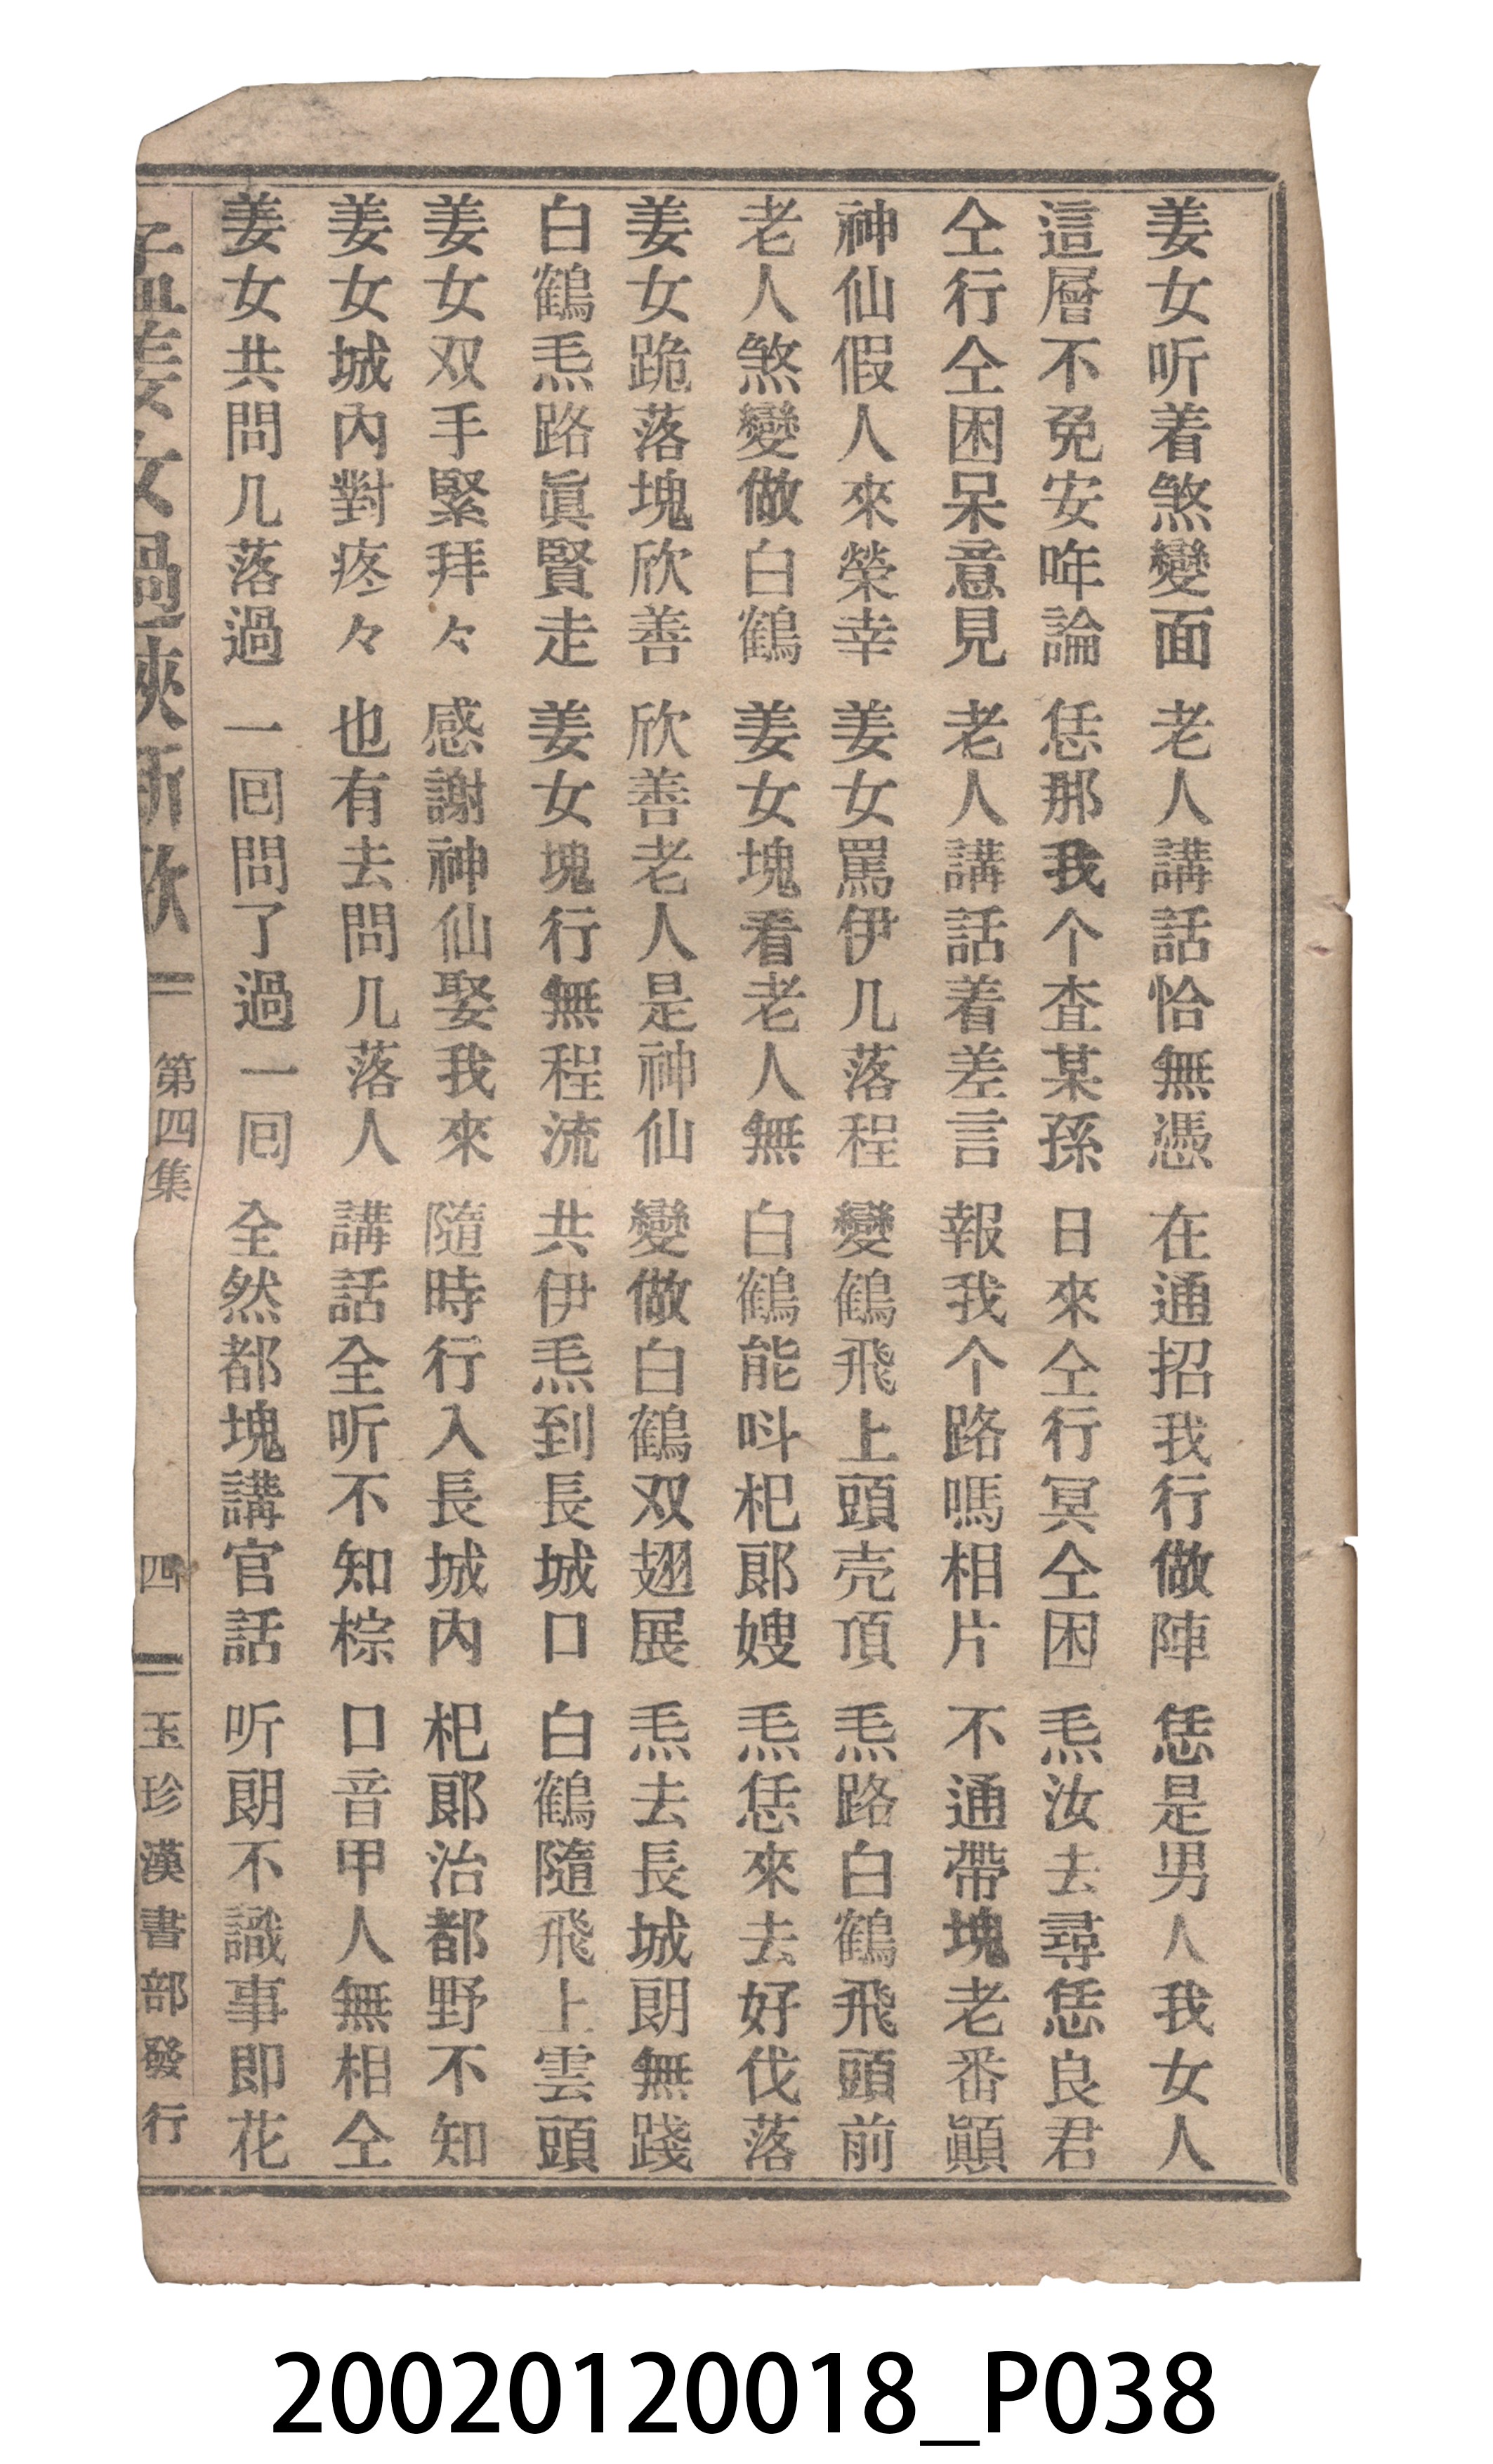 姜女听着煞變面 老人講話恰無憑 在通招我行做陣 恁是男人我女人
這層不免安哖論 恁那我个查某孫 日來仝行冥仝困 𤆬汝去尋恁良君
仝行仝困呆意見 老人講話着差言 報我个路嗎相片 不通帶塊老番顚
神仙假人來榮幸 姜女罵伊几落程 變鶴飛上頭壳頂 𤆬路白鶴飛頭前
老人煞變做白鶴 姜女塊看老人無 白鶴能呌杞郞嫂 𤆬恁來去好伐落
姜女跪落塊欣善 欣善老人是神仙 變做白鶴双翅展 𤆬去長城朗無踐
白鶴𤆬路眞賢走 姜女塊行無程流 共伊𤆬到長城口 白鶴隨飛上雲頭
姜女双手緊拜々 感謝神仙娶我來 隨時行入長城內 杞郞治都野不知
姜女城內對疼々 也有去問几落人 講話全听不知棕 口音甲人無相仝
姜女共問几落過 一囘問了過一囘 全然都塊講官話 听朗不識事即花
孟姜女過峽新歌 第四集 四 玉珍漢書部發行
20020120018_P038